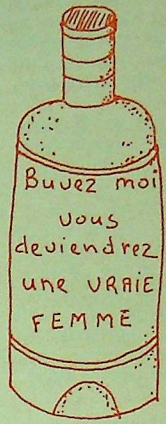 Buvez moi
vous
deviendrez
une VRAIE
FEMME